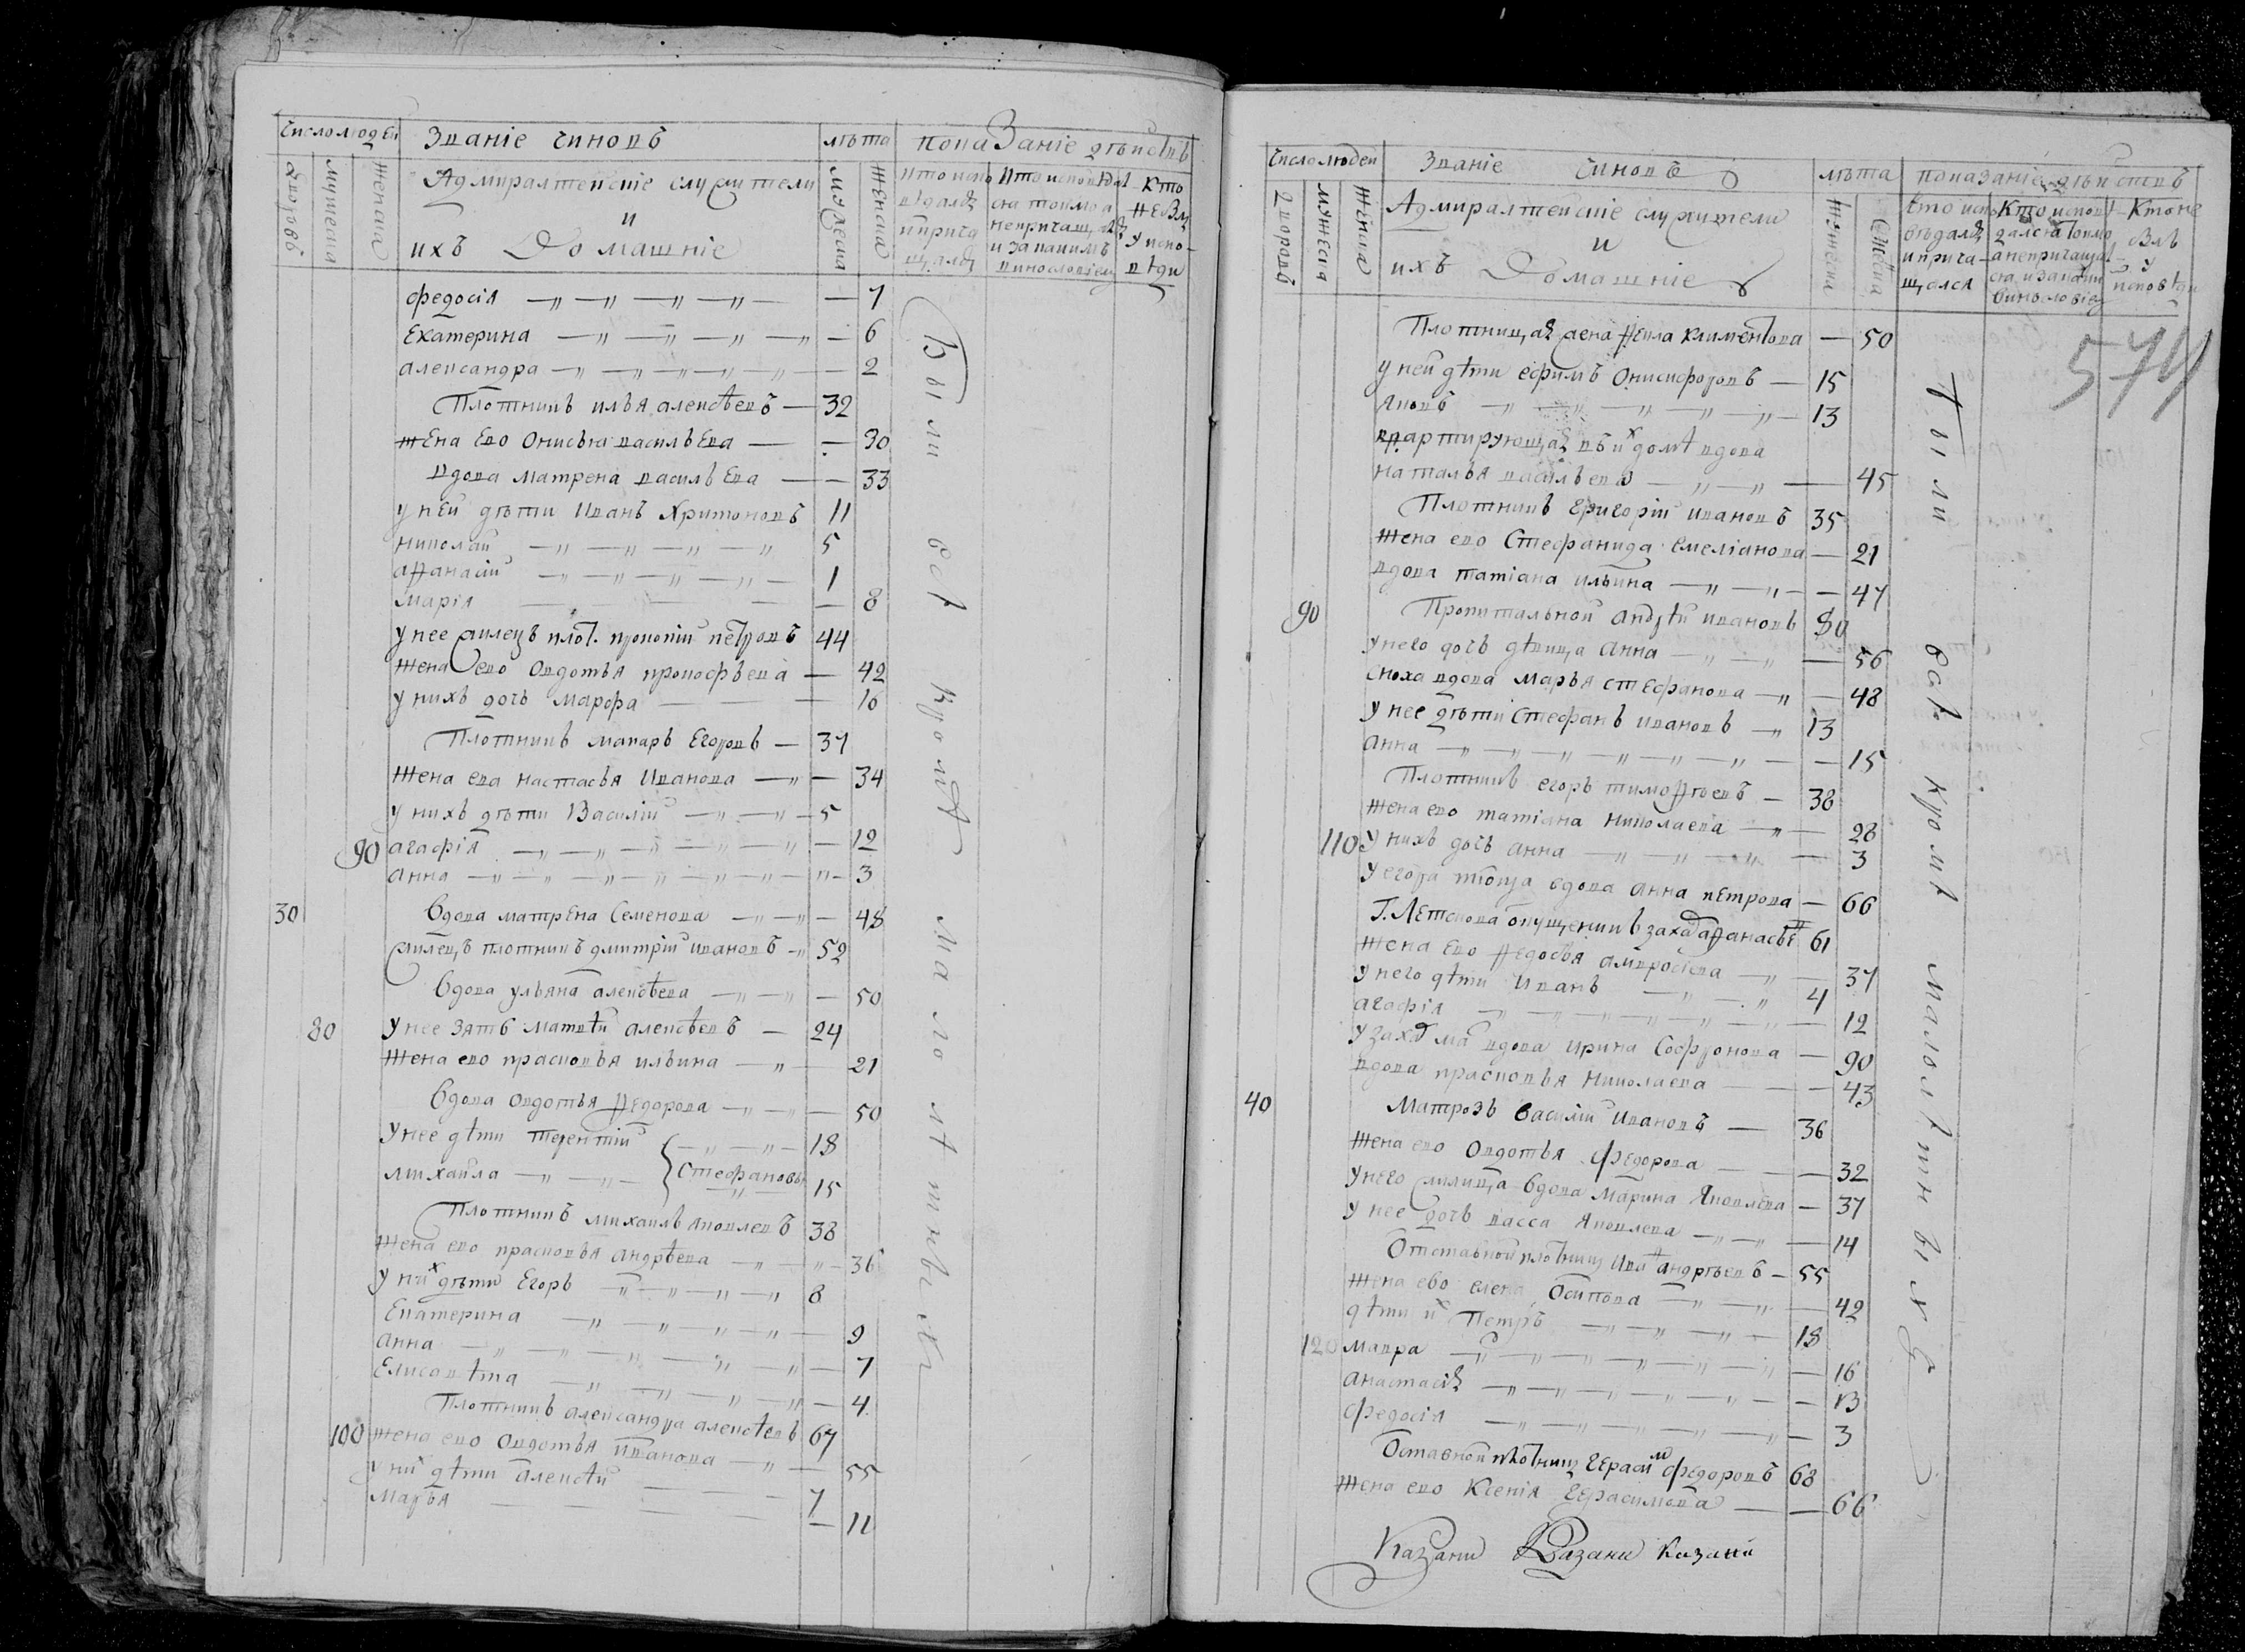 Число людей
Званіе чиновъ
лѣта
показаніе дѣйствъ
дворовъ
мужеска
женска
Адмиралтейскіе служители
и
ихъ Домашніе
мужеска
женска
кто испо
вѣдался
и прича
щался
кто исповѣдал
ся токмо а
непричащался
и за какимъ
винословіем
кто
не былъ
у испо-
вѣди
федосія — 7
Екатерина — 6
александра — 2
Плотникъ илья алексѣевъ — 32
жена ево Онисья васильева — 30
вдова матрена васильева — 33
у ней дѣти Иванъ Харитоновъ 11
николай 5
аѳанасій 1
марія — 8
у нее жилецъ плот. прокопій петровъ 44
жена ево Овдотья прокофьева — 42
у нихъ дочь марфа — 16
Плотникъ макаръ Егоровъ — 37
жена ева настасья Иванова — 34
у нихъ дѣти Василій — 5
90 агафія — 12
анна — 3
30 вдова матрена Семенова — 48
жилецъ плотникъ дмитрій ивановъ 52
вдова ульяна алексѣева — 50
80 у нее зять матвѣй алексѣевъ — 24
жена ево прасковья ильина — 21
вдова Овдотья Ѳедорова — 50
у нее дѣти терентій — 18
михайла — Стефановы 15
Плотникъ михаилъ яковлевъ 38
жена ево прасковья андрѣева — 36
у них дѣти Егоръ — 8
Екатерина — 9
анна — 7
Елисавѣта — 4
Плотникъ александра алексѣевъ 67
100 жена ево Овдотья иванова — 55
у них дѣти алексѣй — 7
марья — 11
Были всѣ кромѣ малолѣтныхъ
Число людей
Званіе чиновъ
лѣта
показаніе дѣйствъ
дворовъ
мужеска
женска
Адмиралтейскіе служители
и
ихъ Домашніе
мужеска
женска
кто испо
вѣдался
и прича-
щался
кто исповѣ
дался токмо
а непричащал
ся, и за каким
винословіем
Кто не
былъ
у
исповѣди
574
Плотницкая жена Ѳекла климентова — 50
у ней дѣти ефимъ Онисифоровъ — 15
яковъ — 13
квартирующая въ их домѣ вдова
наталья васильева — 45
Плотникъ Григорій ивановъ 35
жена ево Стефанида Емеліанова — 21
вдова татіана ильина — 47
90 Пропитальной андрѣй ивановъ 80
у него дочь дѣвица анна — 56
сноха вдова марья стефанова — 48
у нее дѣти Стефанъ ивановъ — 13
анна — 15
Плотникъ егоръ тимоѳѣевъ — 38
жена ево татіана николаева — 28
110 у нихъ дочь анна — 3
у егора тіоща вдова анна петрова — 66
61
жена ево Ѳедосья амвросіева — 37
у него дѣти Иванъ — 4
агафія — 12
вдова ирина Софронова — 90
вдова прасковья николаева — 43
40 Матрозъ василій ивановъ — 36
жена ево Овдотья федорова — 32
у него жилица вдова марина яковлева — 37
у нее дочь васса яковлева — 14
Отставной плотник Иван андрѣевъ — 55
жена ево елена Осипова — 42
дѣти их Петръ — 18
120 мавра — 16
анастасія — 13
федосія — 3
Оставной плотник герасим федоровъ 68
жена ево Ксенія герасимова — 66
Были всѣ кромѣ малолѣтныхъ
Казани Казани казани